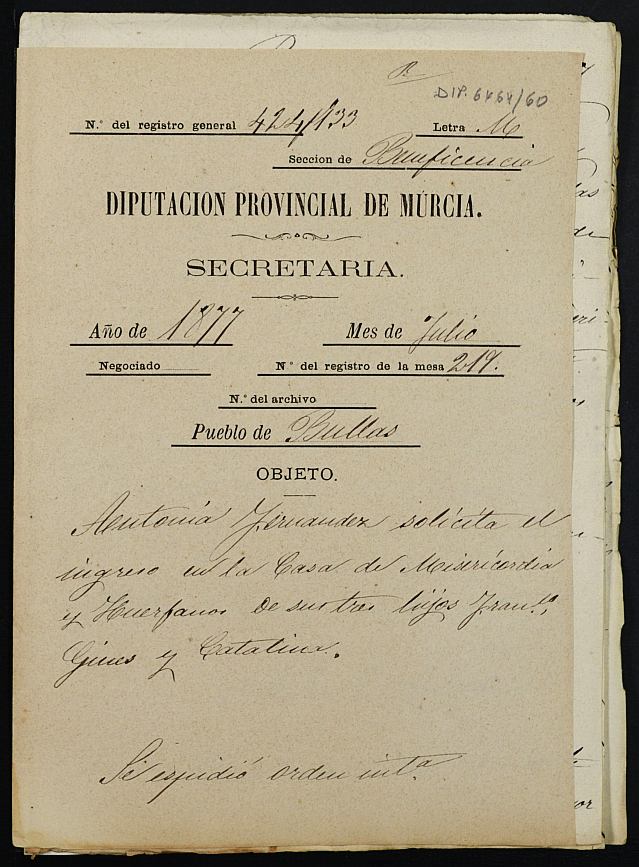 DIP. 6464/60
N.º del registro general 424/133 Letra M
Seccion de Beneficencia
DIPUTACION PROVINCIAL DE MURCIA.
SECRETARIA.
Año de 1877 Mes de Julio
Negociado
N.º del registro de la mesa 219.
N.º del archivo
Pueblo de Bullas
OBJETO.
Antonia Fernandez solicita el
ingreso en la Casa de Misericordia
y Huerfanos de sus tres hijos Fran.ca
Gines y Catalina.
Se espidió orden int.a